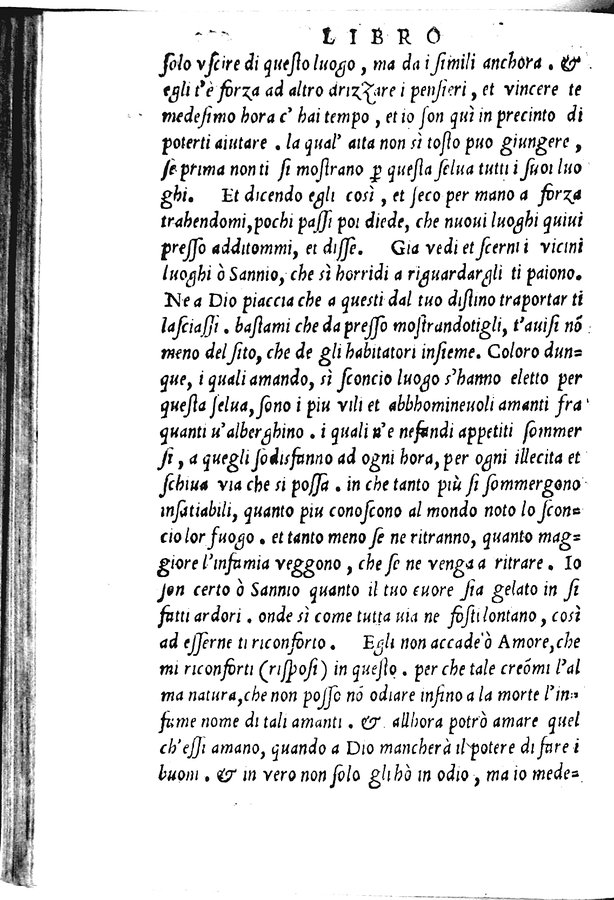 LIBRO
ſolo vſcire di queſto luogo, ma da i ſimili anchora. &
egli t'è forza ad altro drizzare i penſieri, et vincere te
medeſimo hora c' hai tempo, et io ſon quì in precinto di
poterti aiutare. la qual' aita non sì toſto puo giungere,
ſe prima non ti ſi moſtrano ꝑ queſta ſelua tutti i ſuoi luo
ghi. Et dicendo egli così, et ſeco per mano a forza
trahendomi, pochi paſſi poi diede, che nuoui luoghi quiui
preſſo additommi, et diſſe. Gia vedi et ſcerni i vicini
luoghi ò Sannio, che sì horridi a riguardargli ti paiono.
Ne a Dio piaccia che a queſti dal tuo diſtino traportar ti
laſciaſſi. baſtami che da preſſo moſtrandotigli, t'auiſi nõ
meno del ſito, che de gli habitatori inſieme. Coloro dun=
que, i quali amando, sì ſconcio luogo s'hanno eletto per
queſta ſelua, ſono i piu vili et abbhomineuoli amanti fra
quanti u'alberghino. i quali n'e nefandi appetiti ſommer
ſi, a quegli ſodisfanno ad ogni hora, per ogni illecita et
ſchiua via che si poſſa. in che tanto più ſi ſommergono
inſatiabili, quanto piu conoſcono al mondo noto lo ſcon=
cio lor fuogo. et tanto meno ſe ne ritranno, quanto mag=
giore l'infamia veggono, che ſe ne venga a ritrare. Io
ſon certo ò Sannio quanto il tuo cuore ſia gelato in ſi
fatti ardori. onde sì come tutta uia ne foſti lontano, così
ad eſſerne ti riconforto. Egli non accade ò Amore, che
mi riconforti (riſpoſi) in queſto. per che tale creómi l'al
ma natura, che non poſſo nõ odiare inſino a la morte l'in=
fame nome di tali amanti. & allhora potrò amare quel
ch'eſſi amano, quando a Dio mancherà il potere di fare i
buoni. & in vero non ſolo gli hò in odio, ma io mede=